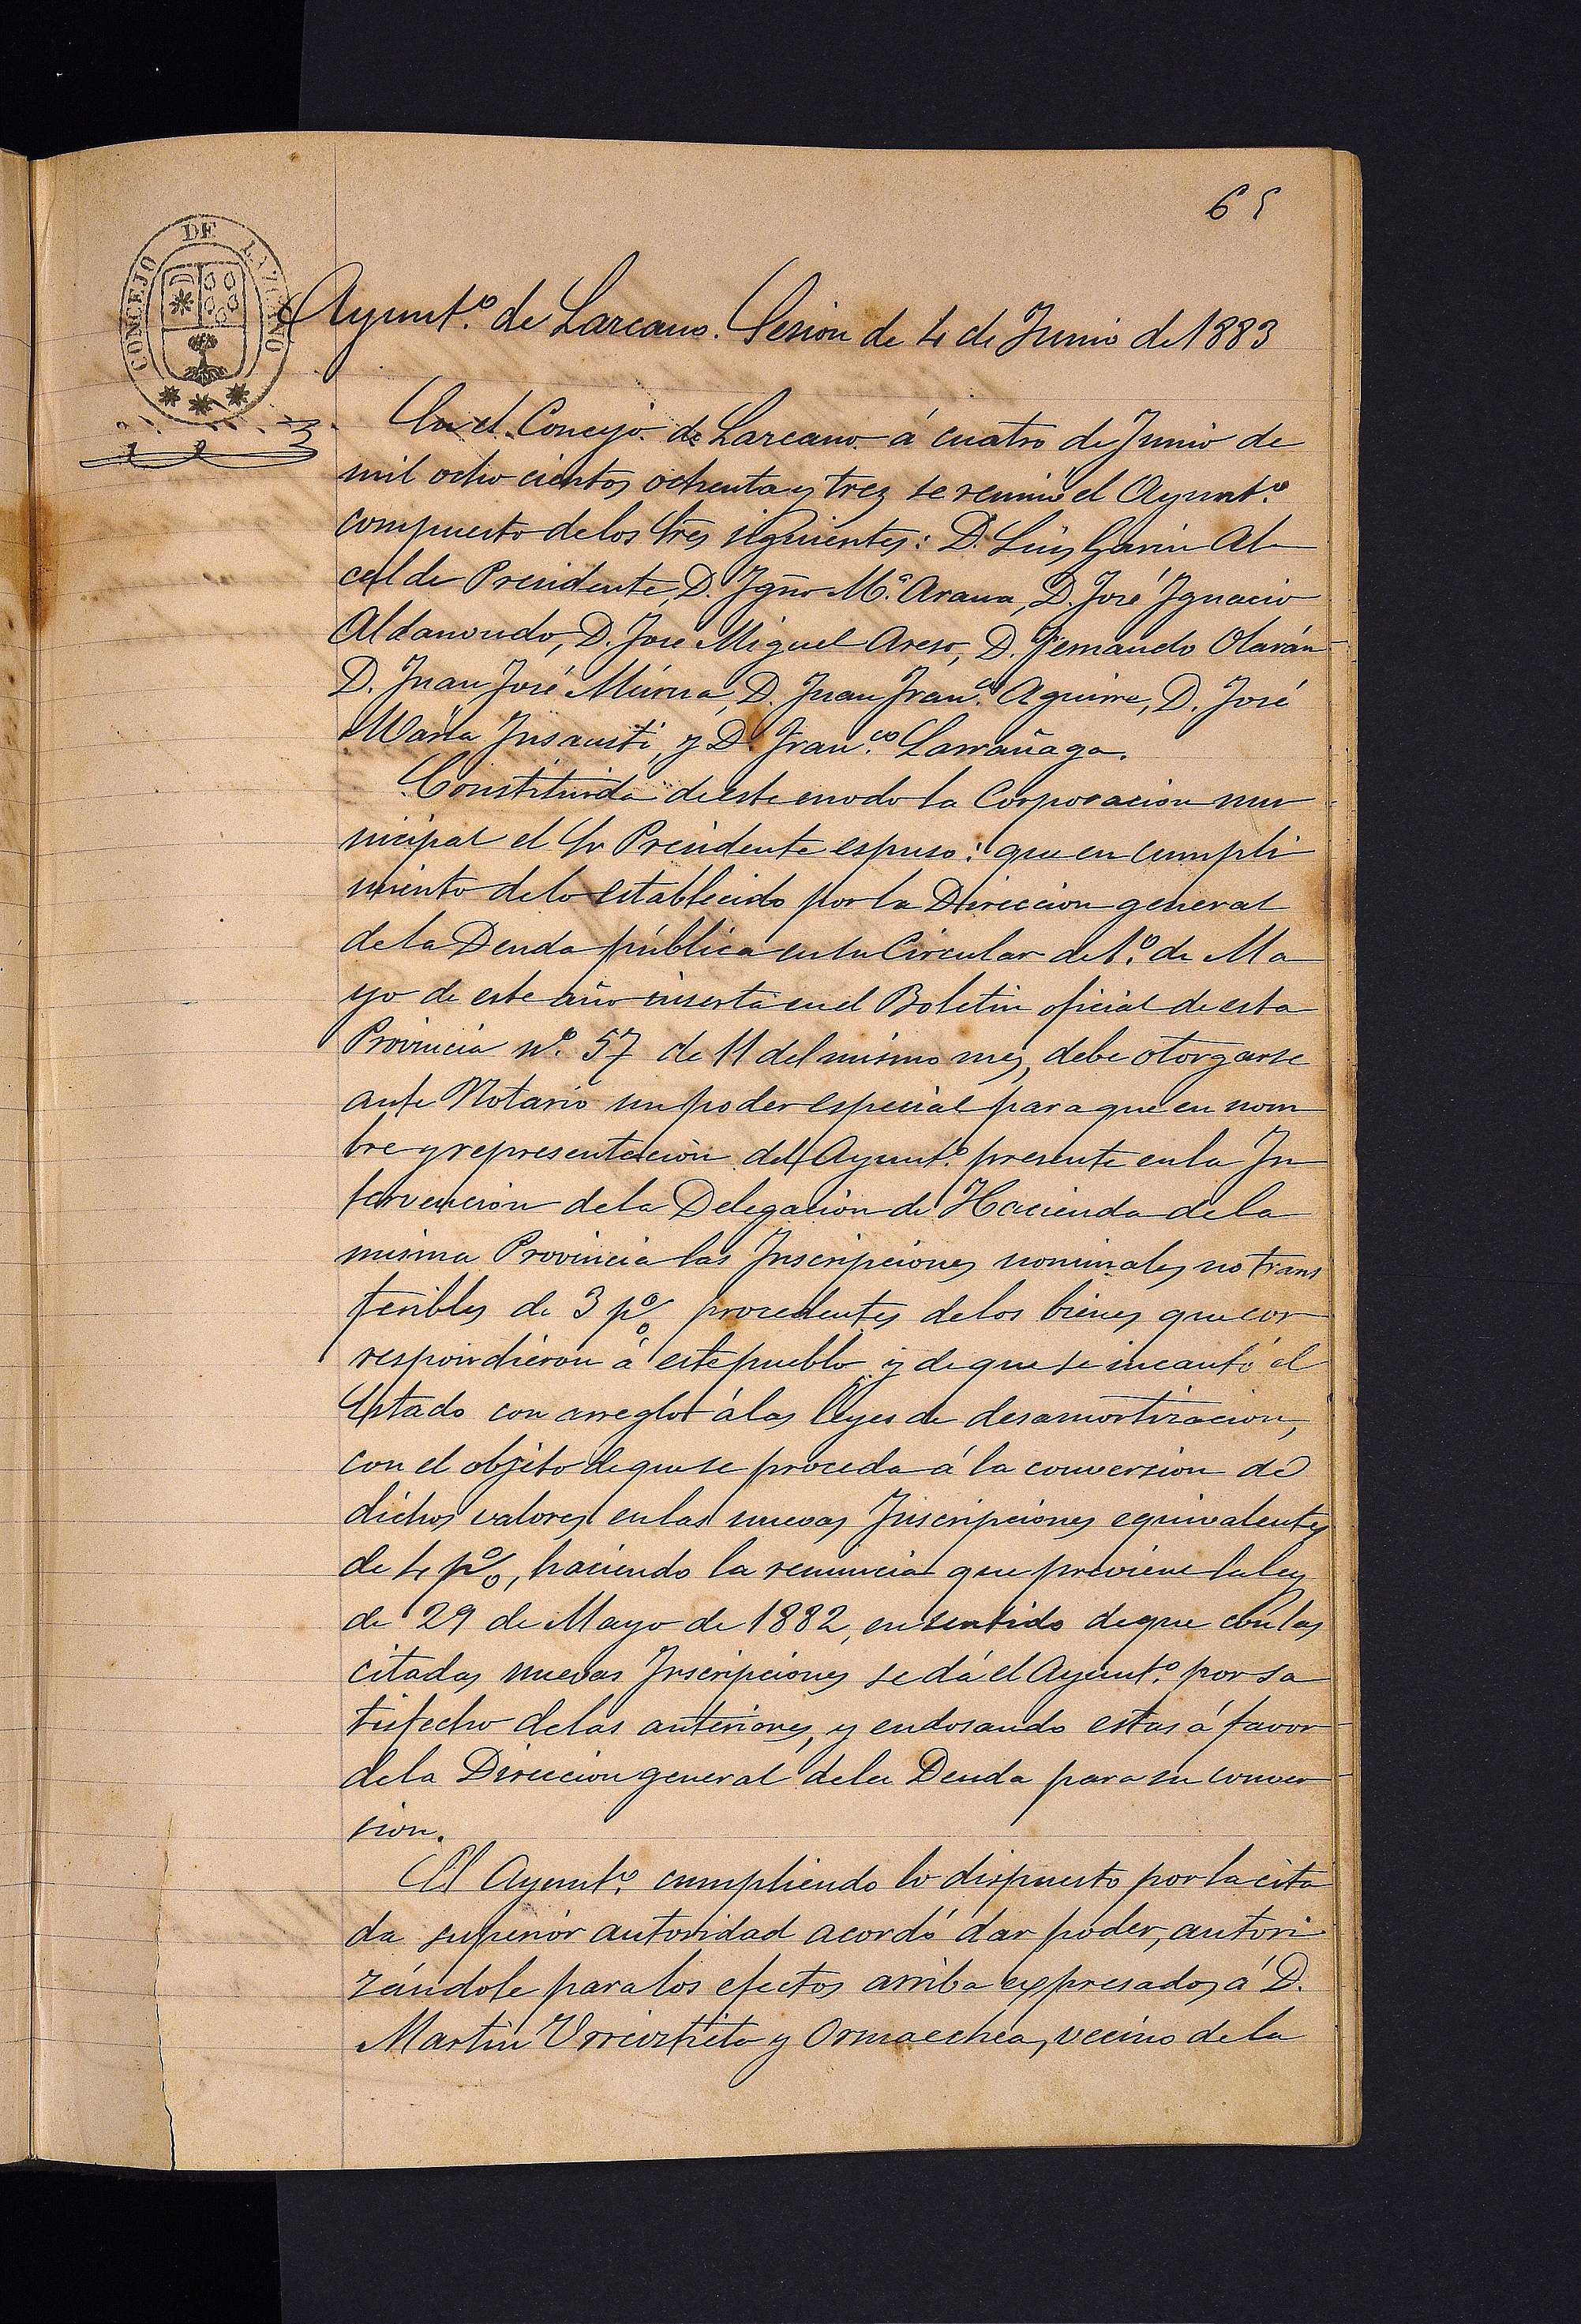 65
CONCEJO DE LAZCANO
Ayunt.º de Lazcano. Sesion de 4 de Junio de 1883
En el Concejo de Lazcano á cuatro de Junio de
mil ocho cientos ochenta y trez se reunió el Ayunt.º
compuesto de los Sres siguientes: D. Luis Garin Al-
calde Presidente, D. Ygno M.ª Arana, D. José Ygnacio
Aldamondo, D. José Miguel Areso, D. Fernando Olarán
D. Juan José Múrua, D. Juan Fran.co Aguirre, D. José
María Insausti, y D. Fran.co Larrañaga.
Constituida de este modo la Corporacion mu
nicipal el Sr Presidente espuso: que en cumpli
miento de lo establecido por la Direccion general
de la Deuda pública en su Circular de 1.º de Ma
yo de este año inserta en el Boletin oficial de esta
Provincia nº. 57 de 11 del mismo mes, debe otorgarse
ante Notario un poder especial para que en nom
bre y representacion del Ayunt.º presente en la In
tervencion de la Delegacion de Hacienda de la
misma Provincia las Inscripciones nominales no trans
feribles de 3 p% procedentes de los bienes que cor
respondieron á este pueblo y de que se incautó el
Estado con arreglo á las leyes de desamortizacion,
con el objeto de que se proceda á la conversion de
dichos valores en las nuevas Inscripciones equivalentes
de 4 p%, haciendo la renuncia que previene la ley
de 29 de Mayo de 1882, en sentido de que con las
citadas nuevas Inscripciones se dá el Ayunt.º por sa
tisfecho de las anteriores, y endosando estas á favor
de la Direccion general de la Deuda para su conver
sion.
El Ayunt.º cumpliendo lo dispuesto por la cita
da superior autoridad acordó dar poder, autori
zándole para los efectos arriba expresados á D.
Martin Urreiztieta y Ormaechea, vecino de la